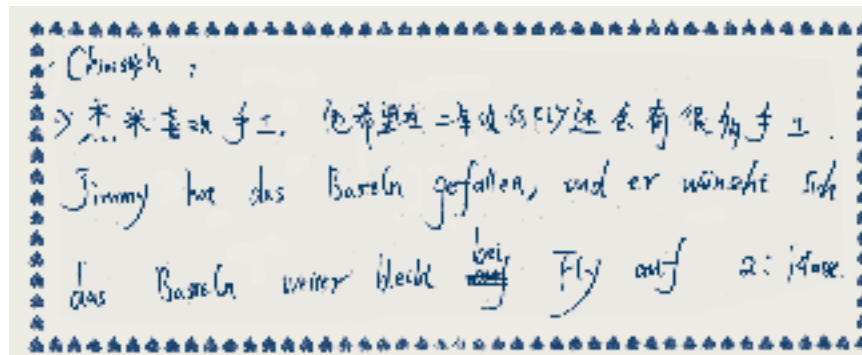 Chinesisch :
> 杰米喜欢手工. 他希望在二年级的Fly还会有很多手工.
Jimmy hat das Basteln gefallen, und er wünscht sich
das Basteln weiter bleibt bei Fly auf 2: klasse.